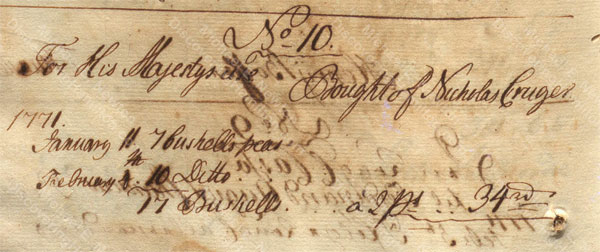 No. 10.
For His Majestys use Bought of Nicholas Cruger
1771.
January 11 7 Bushells peas
February 10 Ditto
17 Bushells . . . a 2 ps . . . 34 rd